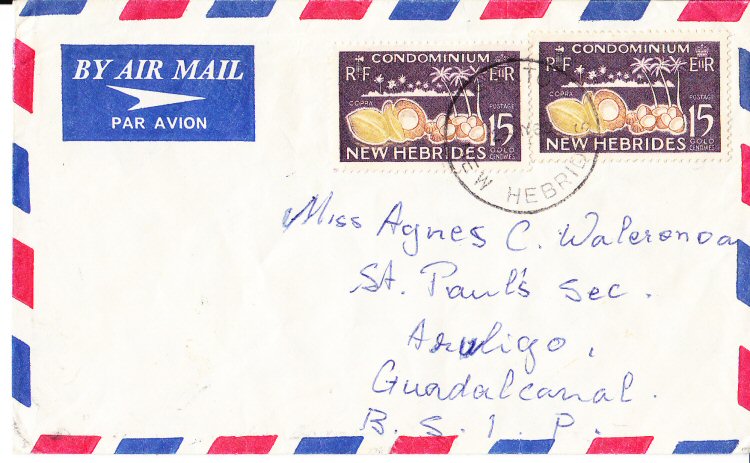 BY AIR MAIL
PAR AVION
CONDOMINIUM
RF EIIR
COPRA
POSTAGE
15
GOLD
CENTIMES
NEW HEBRIDES
CONDOMINIUM
RF EIIR
COPRA
POSTAGE
15
GOLD
CENTIMES
NEW HEBRIDES
EW HEBRID
Miss Agnes C. Waleronoa
St. Paul's Sec.
Aruligo,
Guadalcanal.
B. S. I. P.